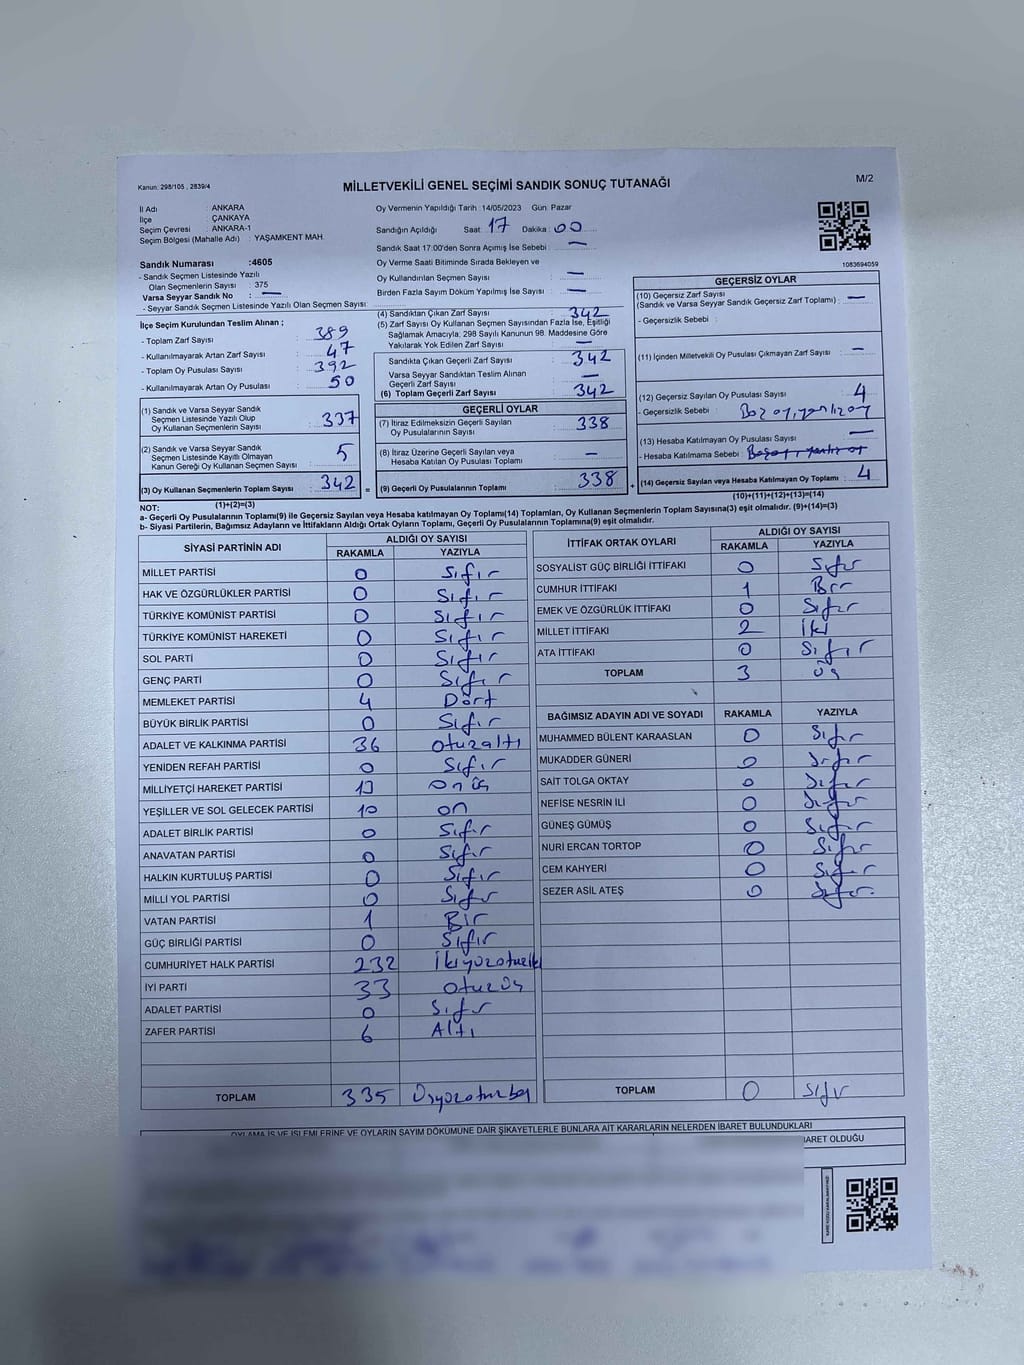 Kanun: 298/105 , 2839/4
MİLLETVEKİLİ GENEL SEÇİMİ SANDIK SONUÇ TUTANAĞI
M/2
İl Adı ANKARA
İlçe ÇANKAYA
Seçim Çevresi : ANKARA-1
Seçim Bölgesi (Mahalle Adı) : YAŞAMKENT MAH.
Oy Vermenin Yapıldığı Tarih :14/05/2023 Gün: Pazar
Sandığın Açıldığı Saat: 17 Dakika: 00
Sandık Saat 17:00'den Sonra Açımış İse Sebebi : —
Oy Verme Saati Bitiminde Sırada Bekleyen ve
Oy Kullandırılan Seçmen Sayısı : —
Birden Fazla Sayım Döküm Yapılmış İse Sayısı : —
1083694059
Sandık Numarası :4605
- Sandık Seçmen Listesinde Yazılı
Olan Seçmenlerin Sayısı : 375
Varsa Seyyar Sandık No : —
- Seyyar Sandık Seçmen Listesinde Yazılı Olan Seçmen Sayısı:
İlçe Seçim Kurulundan Teslim Alınan ;
- Toplam Zarf Sayısı : 389
- Kullanılmayarak Artan Zarf Sayısı : 47
- Toplam Oy Pusulası Sayısı : 392
- Kullanılmayarak Artan Oy Pusulası : 50
(1) Sandık ve Varsa Seyyar Sandık
Seçmen Listesinde Yazılı Olup
Oy Kullanan Seçmenlerin Sayısı : 337
(2) Sandık ve Varsa Seyyar Sandık
Seçmen Listesinde Kayıtlı Olmayan
Kanun Gereği Oy Kullanan Seçmen Sayısı : 5
(3) Oy Kullanan Seçmenlerin Toplam Sayısı : 342 =
(1)+(2)=(3)
(4) Sandıktan Çıkan Zarf Sayısı : 342
(5) Zarf Sayısı Oy Kullanan Seçmen Sayısından Fazla İse, Eşitliği
Sağlamak Amacıyla; 298 Sayılı Kanunun 98. Maddesine Göre
Yakılarak Yok Edilen Zarf Sayısı : —
Sandıkta Çıkan Geçerli Zarf Sayısı : 342
Varsa Seyyar Sandıktan Teslim Alınan
Geçerli Zarf Sayısı : —
(6) Toplam Geçerli Zarf Sayısı : 342
GEÇERLİ OYLAR
(7) İtiraz Edilmeksizin Geçerli Sayılan
Oy Pusulalarının Sayısı : 338
(8) İtiraz Üzerine Geçerli Sayılan veya
Hesaba Katılan Oy Pusulası Toplamı : —
(9) Geçerli Oy Pusulalarının Toplamı : 338 +
GEÇERSİZ OYLAR
(10) Geçersiz Zarf Sayısı
(Sandık ve Varsa Seyyar Sandık Geçersiz Zarf Toplamı) : —
- Geçersizlik Sebebi :
(11) İçinden Milletvekili Oy Pusulası Çıkmayan Zarf Sayısı : —
(12) Geçersiz Sayılan Oy Pusulası Sayısı : 4
- Geçersizlik Sebebi : Boş oy, yanlış oy
(13) Hesaba Katılmayan Oy Pusulası Sayısı : —
- Hesaba Katılmama Sebebi :
(14) Geçersiz Sayılan veya Hesaba Katılmayan Oy Toplamı : 4
(10)+(11)+(12)+(13)=(14)
NOT:
a- Geçerli Oy Pusulaları Toplamı(9) ile Geçersiz Sayılan veya Hesaba Katılmayan Oy Toplamı(14) Toplamları, Oy Kullanan Seçmenlerin Toplam Sayısına(3) eşit olmalıdır. (9)+(14)=(3)
b- Siyasi Partilerin, Bağımsız Adayların ve İttifakların Aldığı Ortak Oyların Toplamı, Geçerli Oy Pusulalarının Toplamına(9) eşit olmalıdır.
SİYASİ PARTİNİN ADI ALDIĞI OY SAYISI
RAKAMLA YAZIYLA
MİLLET PARTİSİ 0 Sıfır
HAK VE ÖZGÜRLÜKLER PARTİSİ 0 Sıfır
TÜRKİYE KOMÜNİST PARTİSİ 0 Sıfır
TÜRKİYE KOMÜNİST HAREKETİ 0 Sıfır
SOL PARTİ 0 Sıfır
GENÇ PARTİ 0 Sıfır
MEMLEKET PARTİSİ 4 Dört
BÜYÜK BİRLİK PARTİSİ 0 Sıfır
ADALET VE KALKINMA PARTİSİ 36 otuzaltı
YENİDEN REFAH PARTİSİ 0 Sıfır
MİLLİYETÇİ HAREKET PARTİSİ 13 on üç
YEŞİLLER VE SOL GELECEK PARTİSİ 10 on
ADALET BİRLİK PARTİSİ 0 Sıfır
ANAVATAN PARTİSİ 0 Sıfır
HALKIN KURTULUŞ PARTİSİ 0 Sıfır
MİLLİ YOL PARTİSİ 0 Sıfır
VATAN PARTİSİ 1 Bir
GÜÇ BİRLİĞİ PARTİSİ 0 Sıfır
CUMHURİYET HALK PARTİSİ 232 ikiyüzotuziki
İYİ PARTİ 33 otuzüç
ADALET PARTİSİ 0 Sıfır
ZAFER PARTİSİ 6 Altı
TOPLAM 335 Üçyüzotuzbeş
İTTİFAK ORTAK OYLARI ALDIĞI OY SAYISI
RAKAMLA YAZIYLA
SOSYALİST GÜÇ BİRLİĞİ İTTİFAKI 0 Sıfır
CUMHUR İTTİFAKI 1 Bir
EMEK VE ÖZGÜRLÜK İTTİFAKI 0 Sıfır
MİLLET İTTİFAKI 2 İki
ATA İTTİFAKI 0 Sıfır
TOPLAM 3 üç
BAĞIMSIZ ADAYIN ADI VE SOYADI RAKAMLA YAZIYLA
MUHAMMED BÜLENT KARAASLAN 0 Sıfır
MUKADDER GÜNERİ 0 Sıfır
SAİT TOLGA OKTAY 0 Sıfır
NEFİSE NESRİN İLİ 0 Sıfır
GÜNEŞ GÜMÜŞ 0 Sıfır
NURİ ERCAN TORTOP 0 Sıfır
CEM KAHYERİ 0 Sıfır
SEZER ASİL ATEŞ 0 Sıfır
TOPLAM 0 Sıfır
OYLAMA İŞ VE İŞLEMLERİNE VE OYLARIN SAYIM DÖKÜMÜNE DAİR ŞİKAYETLERLE BUNLARA AİT KARARLARIN NELERDEN İBARET BULUNDUKLARI
İBARET OLDUĞU